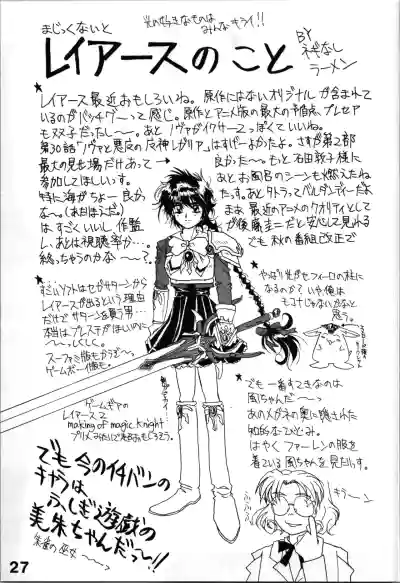 光の好きなものは
みんなキライ!!
まじっくないと
レイアースのこと
BY
ネギなし
ラーメン
★レイアース最近おもしろいね。原作にはないオリジナルが含まれて
いるのがバッチグーって感じ。原作とアニメ版の最大の予想点、プレセア
も双子だったし〜。あとノヴァがイクサー2っぽくていいね。
第30話「ノヴァと悪夢の魔神レガリア」はすげーよかったよ。さすが第2部
最大の見せ場だけあって→良かった〜。もっと石田敦子様に
参加してほしいっす。
特に海がちょー良か
な〜。
は、すごくいいし、作監
し、あとは視聴率か…。
終っちゃうのかな〜?
あとお風呂のシーンも燃えたね
たっす。あとタトラってバルダンディーだよ
まぁ、最近のアニメのクオリティとして
が後藤圭二だと安心して見れる
でも秋の番組改正で
★すごいソフトはセガサターンから
レイアースが出るという理由
だけでサターンを買う男…
本当はプレステがほしいのに
〜っ、しくしく。
スーファミ版もかうぞ〜。
ゲームボーイ版も。
★やっぱり光がセフィーロの柱に
なるのか?いや俺は
モコナじゃないかなと
思う。
ゲームギアの
レイアース2
making of magic knight
★でも一番すきなのは
風ちゃんだ〜
あのメガネの奥に隠された
知的なひとみ。
はやくファーレンの服を
着ている風ちゃんを見たいっす。
でも今のイチバンの
キャラは
ふしぎ遊戯の
美朱ちゃんだっ〜!!
朱雀の巫女〜〜っ
キラーン
27